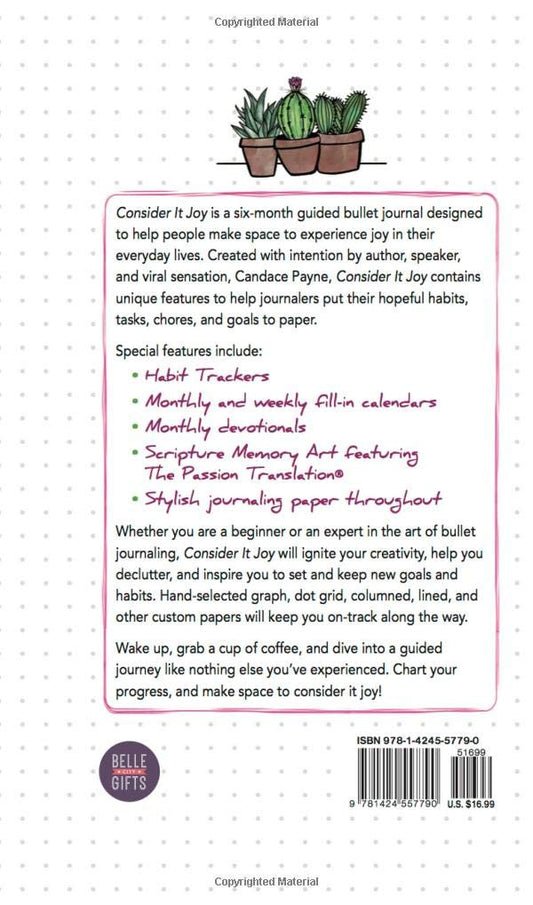 Copyrighted Material
Consider It Joy is a six-month guided bullet journal designed
to help people make space to experience joy in their
everyday lives. Created with intention by author, speaker,
and viral sensation, Candace Payne, Consider It Joy contains
unique features to help journalers put their hopeful habits,
tasks, chores, and goals to paper.
Special features include:
• Habit Trackers
• Monthly and weekly fill-in calendars
• Monthly devotionals
• Scripture Memory Art featuring
The Passion Translation®
• Stylish journaling paper throughout
Whether you are a beginner or an expert in the art of bullet
journaling, Consider It Joy will ignite your creativity, help you
declutter, and inspire you to set and keep new goals and
habits. Hand-selected graph, dot grid, columned, lined, and
other custom papers will keep you on-track along the way.
Wake up, grab a cup of coffee, and dive into a guided
journey like nothing else you've experienced. Chart your
progress, and make space to consider it joy!
BELLE
CITY
GIFTS
ISBN 978-1-4245-5779-0
51699
9 781424 557790
U.S. $16.99
Copyrighted Material